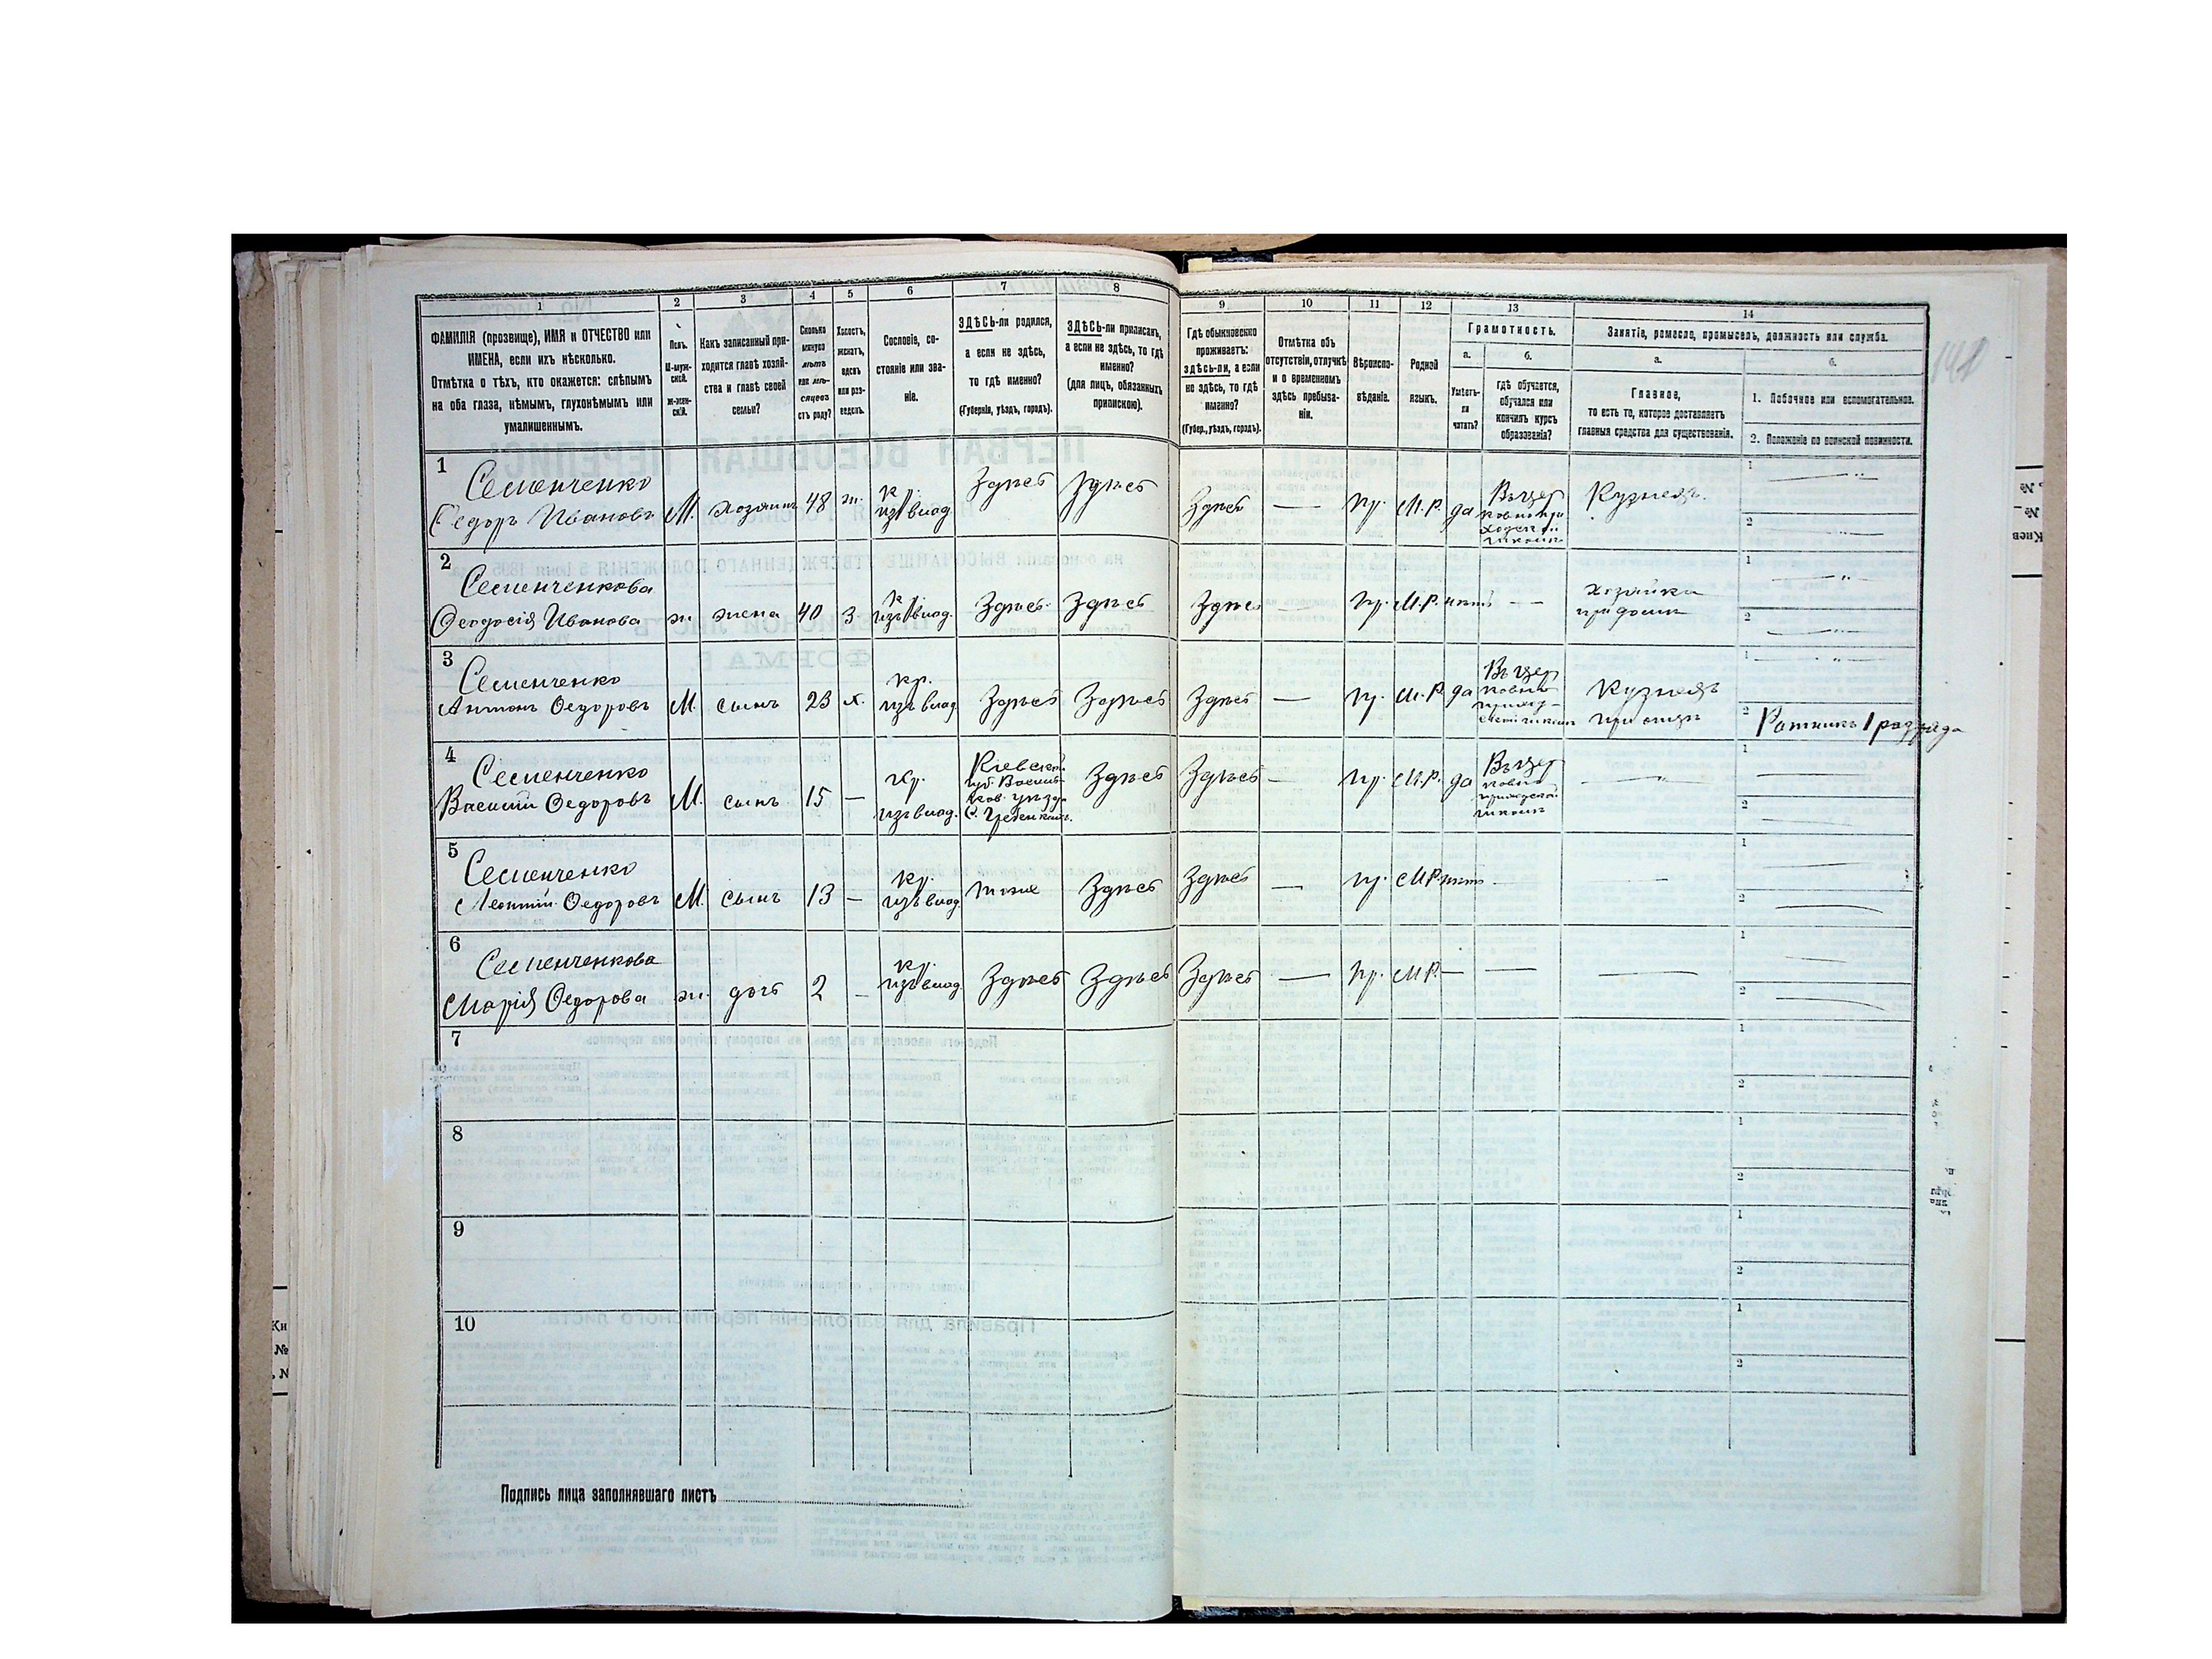 1 2 3 4 5 6 7 8
ФАМИЛІЯ (прозвище), ИМЯ и ОТЧЕСТВО или
ИМЕНА, если ихъ нѣсколько.
Отмѣтка о тѣхъ, кто окажется: слѣпымъ
на оба глаза, нѣмымъ, глухонѣмымъ или
умалишеннымъ.
Полъ.
М-муж-
ской.
Ж-жен-
скій.
Какъ записанный при-
ходится главѣ хозяй-
ства и главѣ своей
семьи?
Сколько
минуло
лѣтъ
или мѣ-
сяцевъ
отъ роду?
Холостъ,
женатъ,
вдовъ
или раз-
веденъ.
Сословіе, со-
стояніе или зва-
ніе.
ЗДѢСЬ-ли родился,
а если не здѣсь,
то гдѣ именно?
(Губернія, уѣздъ, городъ).
ЗДѢСЬ-ли приписанъ,
а если не здѣсь, то гдѣ
именно?
(для лицъ, обязанныхъ
припискою).
9 10 11 12 13 14
Гдѣ обыкновенно
проживаетъ:
здѣсь-ли, а если
не здѣсь, то гдѣ
именно?
(Губер., уѣздъ, городъ).
Отмѣтка объ
отсутствіи, отлучкѣ
и о временномъ
здѣсь пребыва-
ніи.
Вѣроиспо-
вѣданіе.
Родной
языкъ.
Грамотность.
а. б.
Умѣетъ-
ли
читать?
гдѣ обучается,
обучался или
кончилъ курсъ
образованія?
Занятіе, ремесло, промыселъ, должность или служба.
а. б.
Главное,
то есть то, которое доставляетъ
главныя средства для существованія.
1. Побочное или вспомогательное.
2. Положеніе по воинской повинности.
141
1
Семенченко
Ѳедоръ Ивановъ М. хозяинъ 48 ж. кр. изъ влад. Здѣсь Здѣсь Здѣсь — пр. М.Р. да Въ цер
ковно при
ходской
школѣ
Кузнецъ.
1
2
2
Семенченкова
Ѳеодосія Иванова ж. жена 40 З кр. изъ влад. Здѣсь Здѣсь Здѣсь — пр. М.Р. нѣтъ — —
Хозяйка
при домѣ
1
2
3
Семенченко
Антонъ Ѳедоровъ М. сынъ 23 х. кр. изъ влад. Здѣсь Здѣсь Здѣсь — пр. М.Р. да Въ цер
ковно
приход-
ской школѣ
Кузнецъ
при отцѣ
1
2 Ратникъ 1 разряда
4
Семенченко
Василій Ѳедоровъ М. сынъ 15 — кр. изъ влад.
Кіевской
губ. Василь-
ков. уѣзда
с. Гребенкахъ.
Здѣсь Здѣсь — пр. М.Р. да Въ цер
ковно
приходской
школѣ
—
1
2
5
Семенченко
Леонтій Ѳедоровъ М. сынъ 13 — кр. изъ влад. тоже Здѣсь Здѣсь — пр. М.Р. нѣтъ — —
1
2
6
Семенченкова
Марія Ѳедорова ж. дочь 2 — кр. изъ влад. Здѣсь Здѣсь Здѣсь — пр. М.Р. — — —
1
2
7
1
2
8
1
2
9
1
2
10
1
2
Подпись лица заполнявшаго листъ